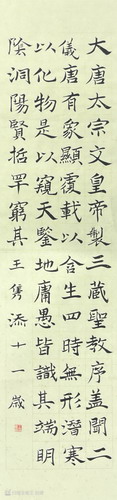 大唐太宗文皇帝製三藏聖教序盖聞二
儀唐有象顯覆載以含生四時無形潛寒
以化物是以窺天鑒地庸愚皆識其端明
陰洞陽賢哲罕窮其 王隽添十一歲